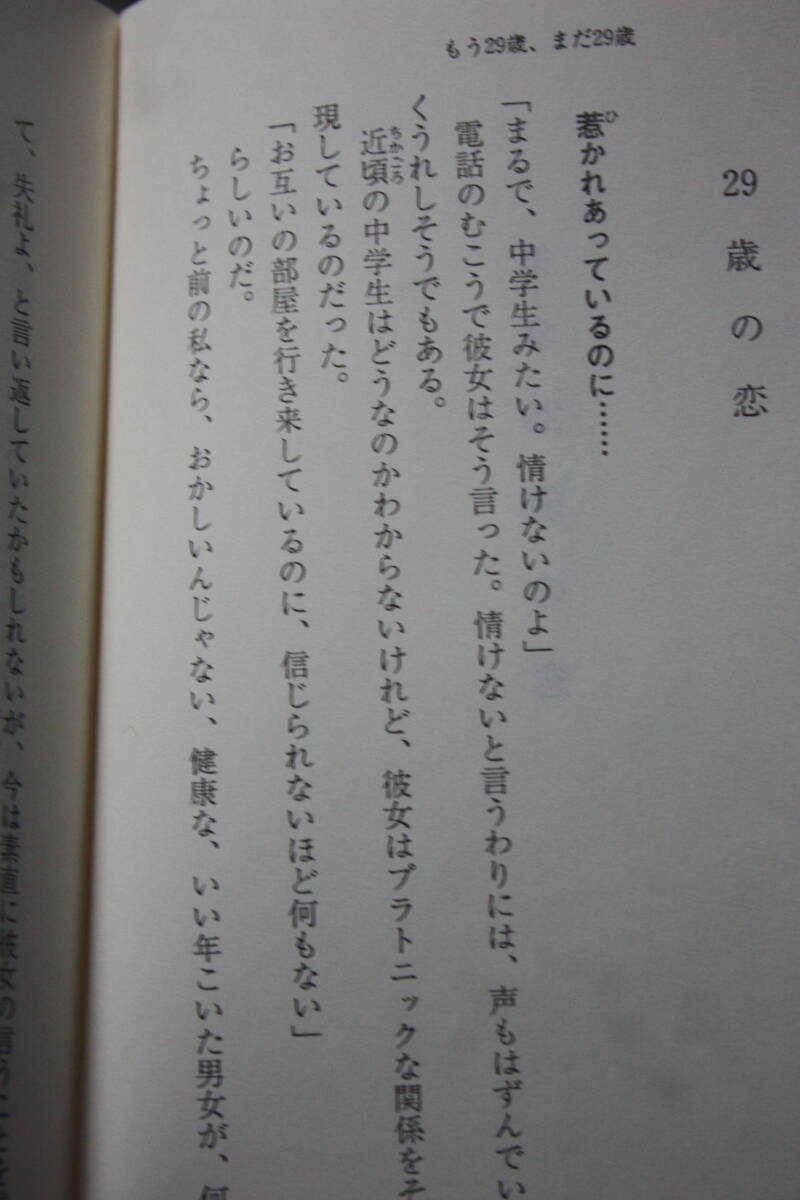 もう29歳、まだ29歳
29歳の恋
惹かれあっているのに……
「まるで、中学生みたい。情けないのよ」
電話のむこうで彼女はそう言った。情けないと言うわりには、声もはずんでい
くうれしそうでもある。
近頃の中学生はどうなのかわからないけれど、彼女はプラトニックな関係をそ
現しているのだった。
「お互いの部屋を行き来しているのに、信じられないほど何もない」
らしいのだ。
ちょっと前の私なら、おかしいんじゃない、健康な、いい年こいた男女が、何
て、失礼よ、と言い返していたかもしれないが、今は素直に彼女の言うことを